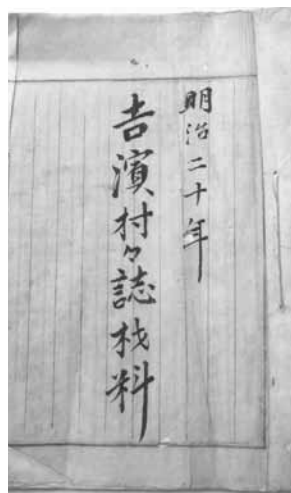 明治二十年
吉濱村々誌材料